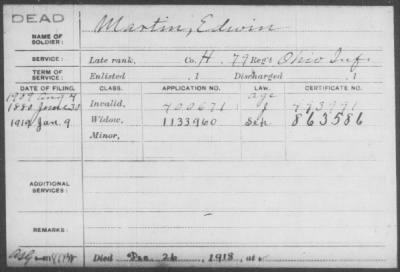 DEAD
NAME OF SOLDIER: Martin, Edwin
SERVICE: Late rank, Co. H. 79 Reg't Ohio Inf.
TERM OF SERVICE: Enlisted , 1 Discharged , 1
DATE OF FILING. CLASS. APPLICATION NO. LAW. CERTIFICATE NO.
1907 Aug 7 age
1880 June Invalid,
1919 Jan. 9 Widow, 1133960 Sep 863586
Minor,
ADDITIONAL SERVICES:
REMARKS:
Died Dec. 26, 1918, at